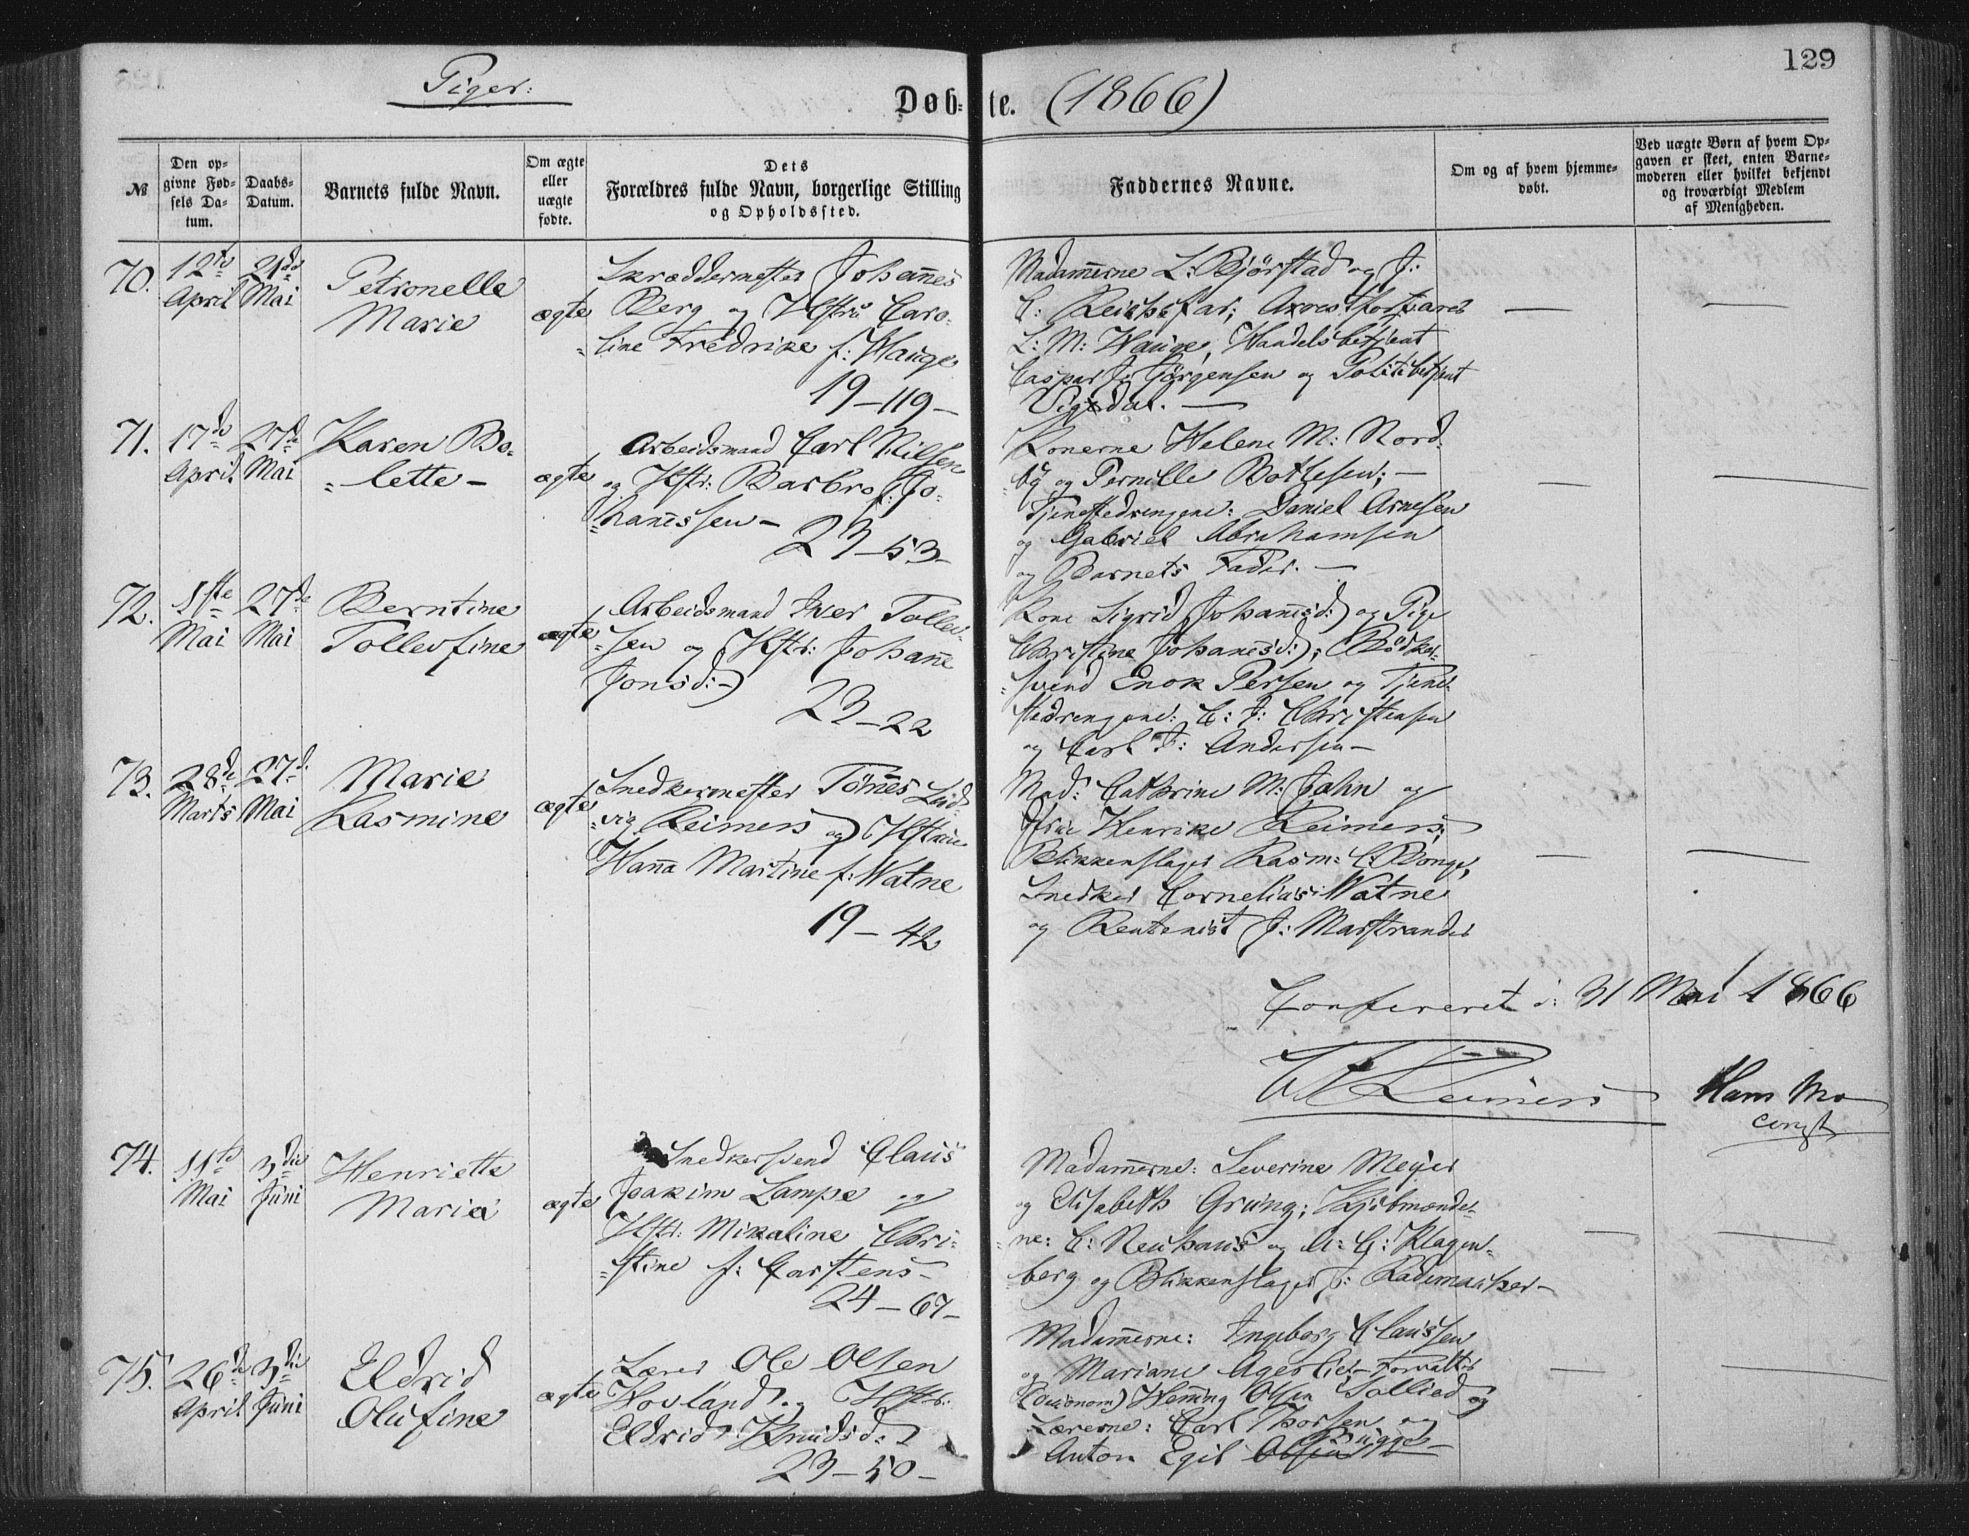 129
Piger:
Døb- te. (1866)
№
Den op-
givne Fød-
sels Da-
tum.
Daabs-
Datum.
Barnets fulde Navn.
Om ægte
eller
uægte
fødte.
Dets
Forældres fulde Navn, borgerlige Stilling
og Opholdssted.
Faddernes Navne.
Om og af hvem hjemme-
døbt.
Ved uægte Børn af hvem Op-
gaven er skeet, enten Barne-
moderen eller hvilket bekjendt
og troværdigt Medlem
af Menigheden.
70.
12te
April
21de
Mai
Petronelle
Marie
ægte
Skræddermester Johannes
Berg og Hstru Caro-
line Fredrike f: Hauge
19-119-
Madamerne L: Bjørstad og J:
C: Arrestforvarer
L: M: Hauge, Handelsbetjent
Caspar J: Jørgensen og Politibetjent
Vigedal. —
71.
17de
April
27de
Mai
Karen Bo-
lette-
ægte
Arbeidsmand Carl Nilsen
og Hstr: Barbro f: Jo-
hanessen-
23-53-
Konerne Helene M: Nord-
by og Pernille Bottesen; —
Tjenestedrengene: Daniel Arnesen
og Gabriel Abrahamsen
og Barnets Fader. —
72.
1ste
Mai
27de
Mai
Berntine
Tollevfine
ægte
Arbeidsmand Iver Tollev-
sen og Hstr: Johanne
Jonsd:-
23-22
Kone Sigrid Johanesd: og Pige
Christine Johanesd:; Bødker-
svend Enok Persen og Tjene-
stedrengene: C: J: Christensen
og Carl F: Andersen-
73.
28de
Marts
27de
Mai
Marie
Rasmine
ægte
Snedkermester Tönnes Lud-
vig Reimers og Hstru
Hanna Martine f: Watne
19-42
Mad: Cathrine M: Jahn og
Henrike Reimers;
Blikkenslager Rasm: C: Bonge,
Snedker Cornelius Watne
og Rentenist J: Marstrander
Confereret d: 31 Mai 1866
Reimers
Hans Mo
const
74.
11te
Mai
3die
Juni
Henriette
Maria
ægte
Snedkersvend Claus
Joakim Lampe og
Hstr: Mikaline Chri-
stine f: Carstens-
24-67-
Madamerne: Severine Meyer
og Elisabeth Grung; Kjøbmænde-
ne: C: Neuhaus og A: G: Klagen-
berg og Blikkenslager J: Rademacher-
75.
26de
April
3die
Juni
Eldrid
Olufine
ægte
Lærer Ole Olsen
Hovland og Hstr:
Eldrid Knudsd:
23-50-
Madamerne: Ingeborg Claussen
og Mariane Agerlier- Forvalter
(Oeconom) Heming Olsen Sollied og
Lærerne: Carl Thorsen og
Anton Egil Bügge-